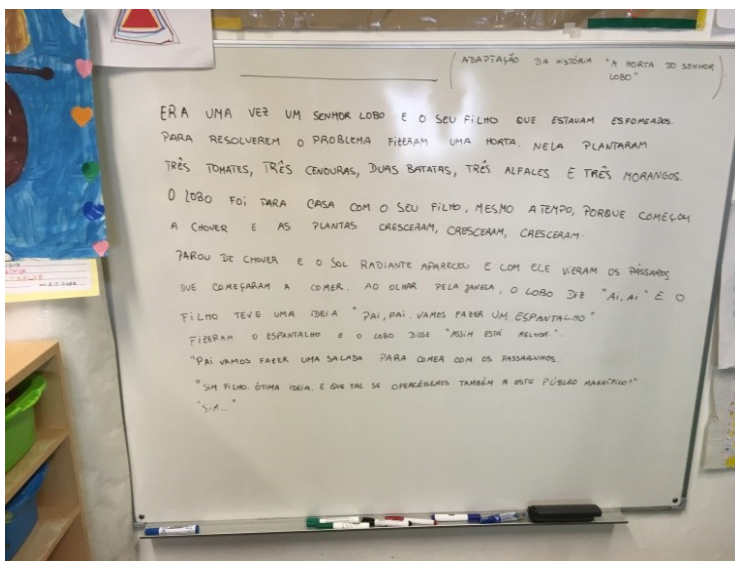 (ADAPTAÇÃO DA HISTÓRIA "A HORTA DO SENHOR
LOBO")
ERA UMA VEZ UM SENHOR LOBO E O SEU FILHO QUE ESTAVAM ESFOMEADOS.
PARA RESOLVEREM O PROBLEMA FIZERAM UMA HORTA. NELA PLANTARAM
TRÊS TOMATES, TRÊS CENOURAS, DUAS BATATAS, TRÊS ALFALES E TRÊS MORANGOS.
O LOBO FOI PARA CASA COM O SEU FILHO, MESMO A TEMPO, PORQUE COMEÇOU
A CHOVER E AS PLANTAS CRESCERAM, CRESCERAM, CRESCERAM.
PAROU DE CHOVER E O SOL RADIANTE APARECEU E COM ELE VIERAM OS PÁSSAROS
QUE COMEÇARAM A COMER. AO OLHAR PELA JANELA, O LOBO DIZ "AI, AI" E O
FILHO TEVE UMA IDEIA "PAI, PAI. VAMOS FAZER UM ESPANTALHO"
FIZERAM O ESPANTALHO E O LOBO DISSE "ASSIM ESTÁ MELHOR".
"PAI VAMOS FAZER UMA SALADA PARA COMER COM OS PASSARINHOS.
"SIM FILHO. ÓTIMA IDEIA. E QUE TAL SE OFERECÊSSEMOS TAMBÉM A ESTE PÚBLICO MAGNÍFICO?"
"SIM..."